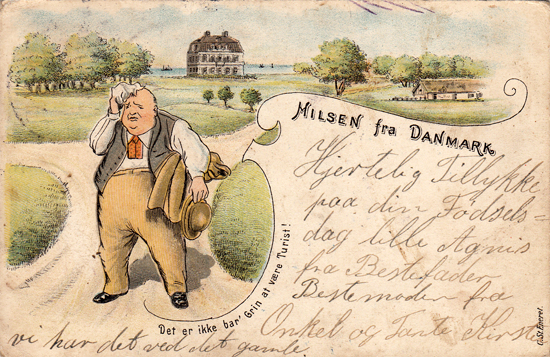 HILSEN fra DANMARK
Hjertelig Tillykke
paa din Fødsels=
dag lille Agnes
fra Bestefader
Bestemoder fra
Onkel og Tante Kirste
Det er ikke bar' Grin at være Turist!
vi har det ved det gamle.